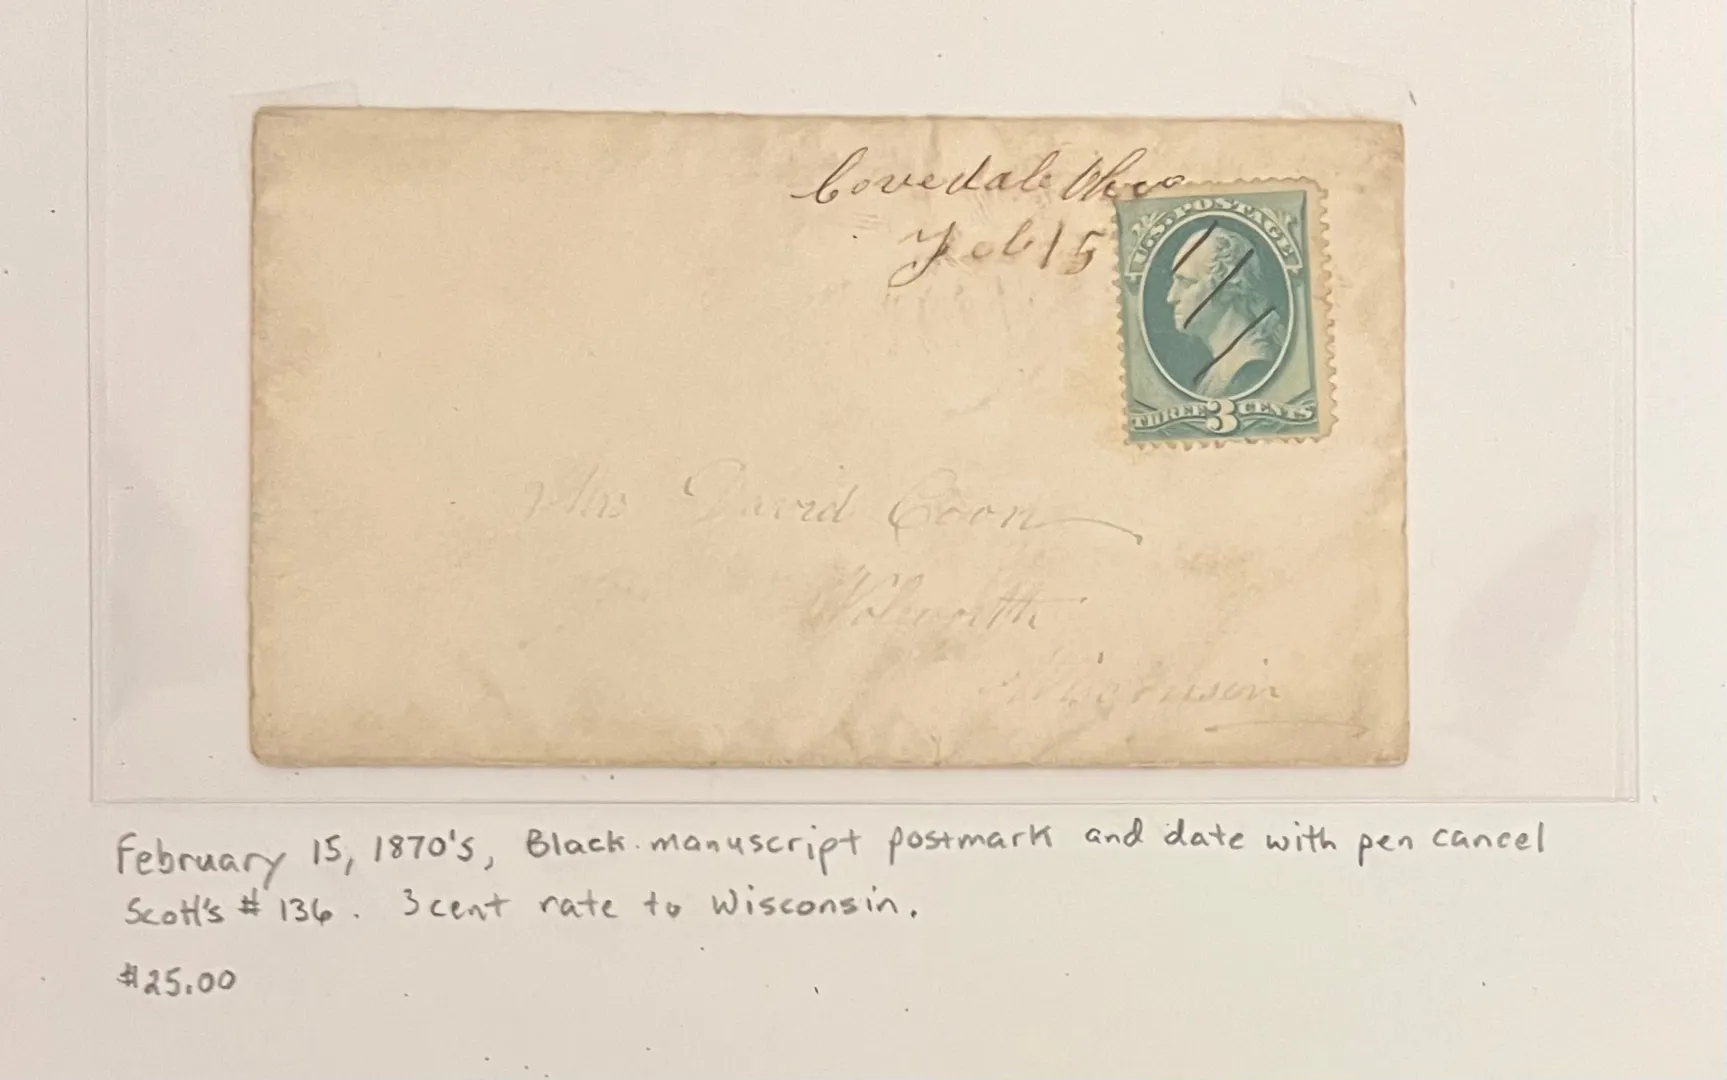 Covedale Ohio
Feb 15
U.S. POSTAGE
THREE 3 CENTS
Mrs David Coon
Walworth
Wisconsin
February 15, 1870's, Black manuscript postmark and date with pen cancel
Scott's # 136. 3 cent rate to Wisconsin.
$25.00